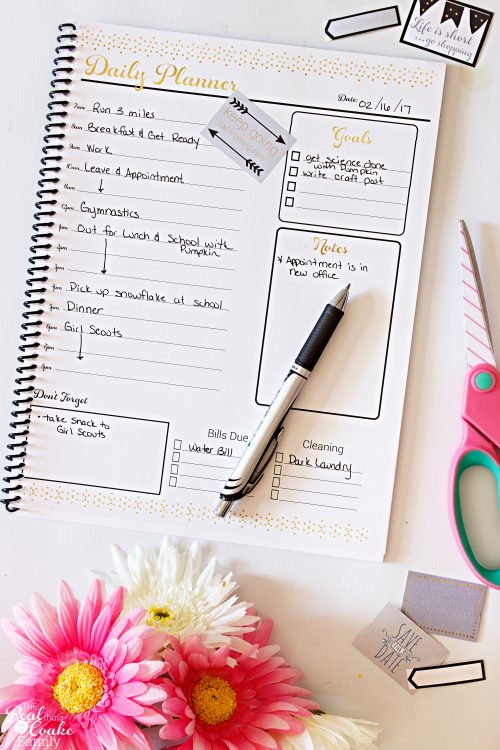 Life is short
...go shopping
Daily Planner
Date: 02/16/17
keep going
7am Run 3 miles
8am Breakfast & Get Ready
9am Work
10am Leave & Appointment
11am
12pm Gymnastics
1pm Out for Lunch & School with
Pumpkin
2pm
3pm
4pm Pick up snowflake at school
5pm Dinner
6pm Girl Scouts
7pm
8pm
Goals
get science done
with Pumpkin
write craft post
Notes
* Appointment is in
new office
Don't Forget
take snack to
Girl Scouts
Bills Due
Water Bill
Cleaning
Dark Laundry
SAVE
the
DATE
the
Real thing
with the
Coake
Family